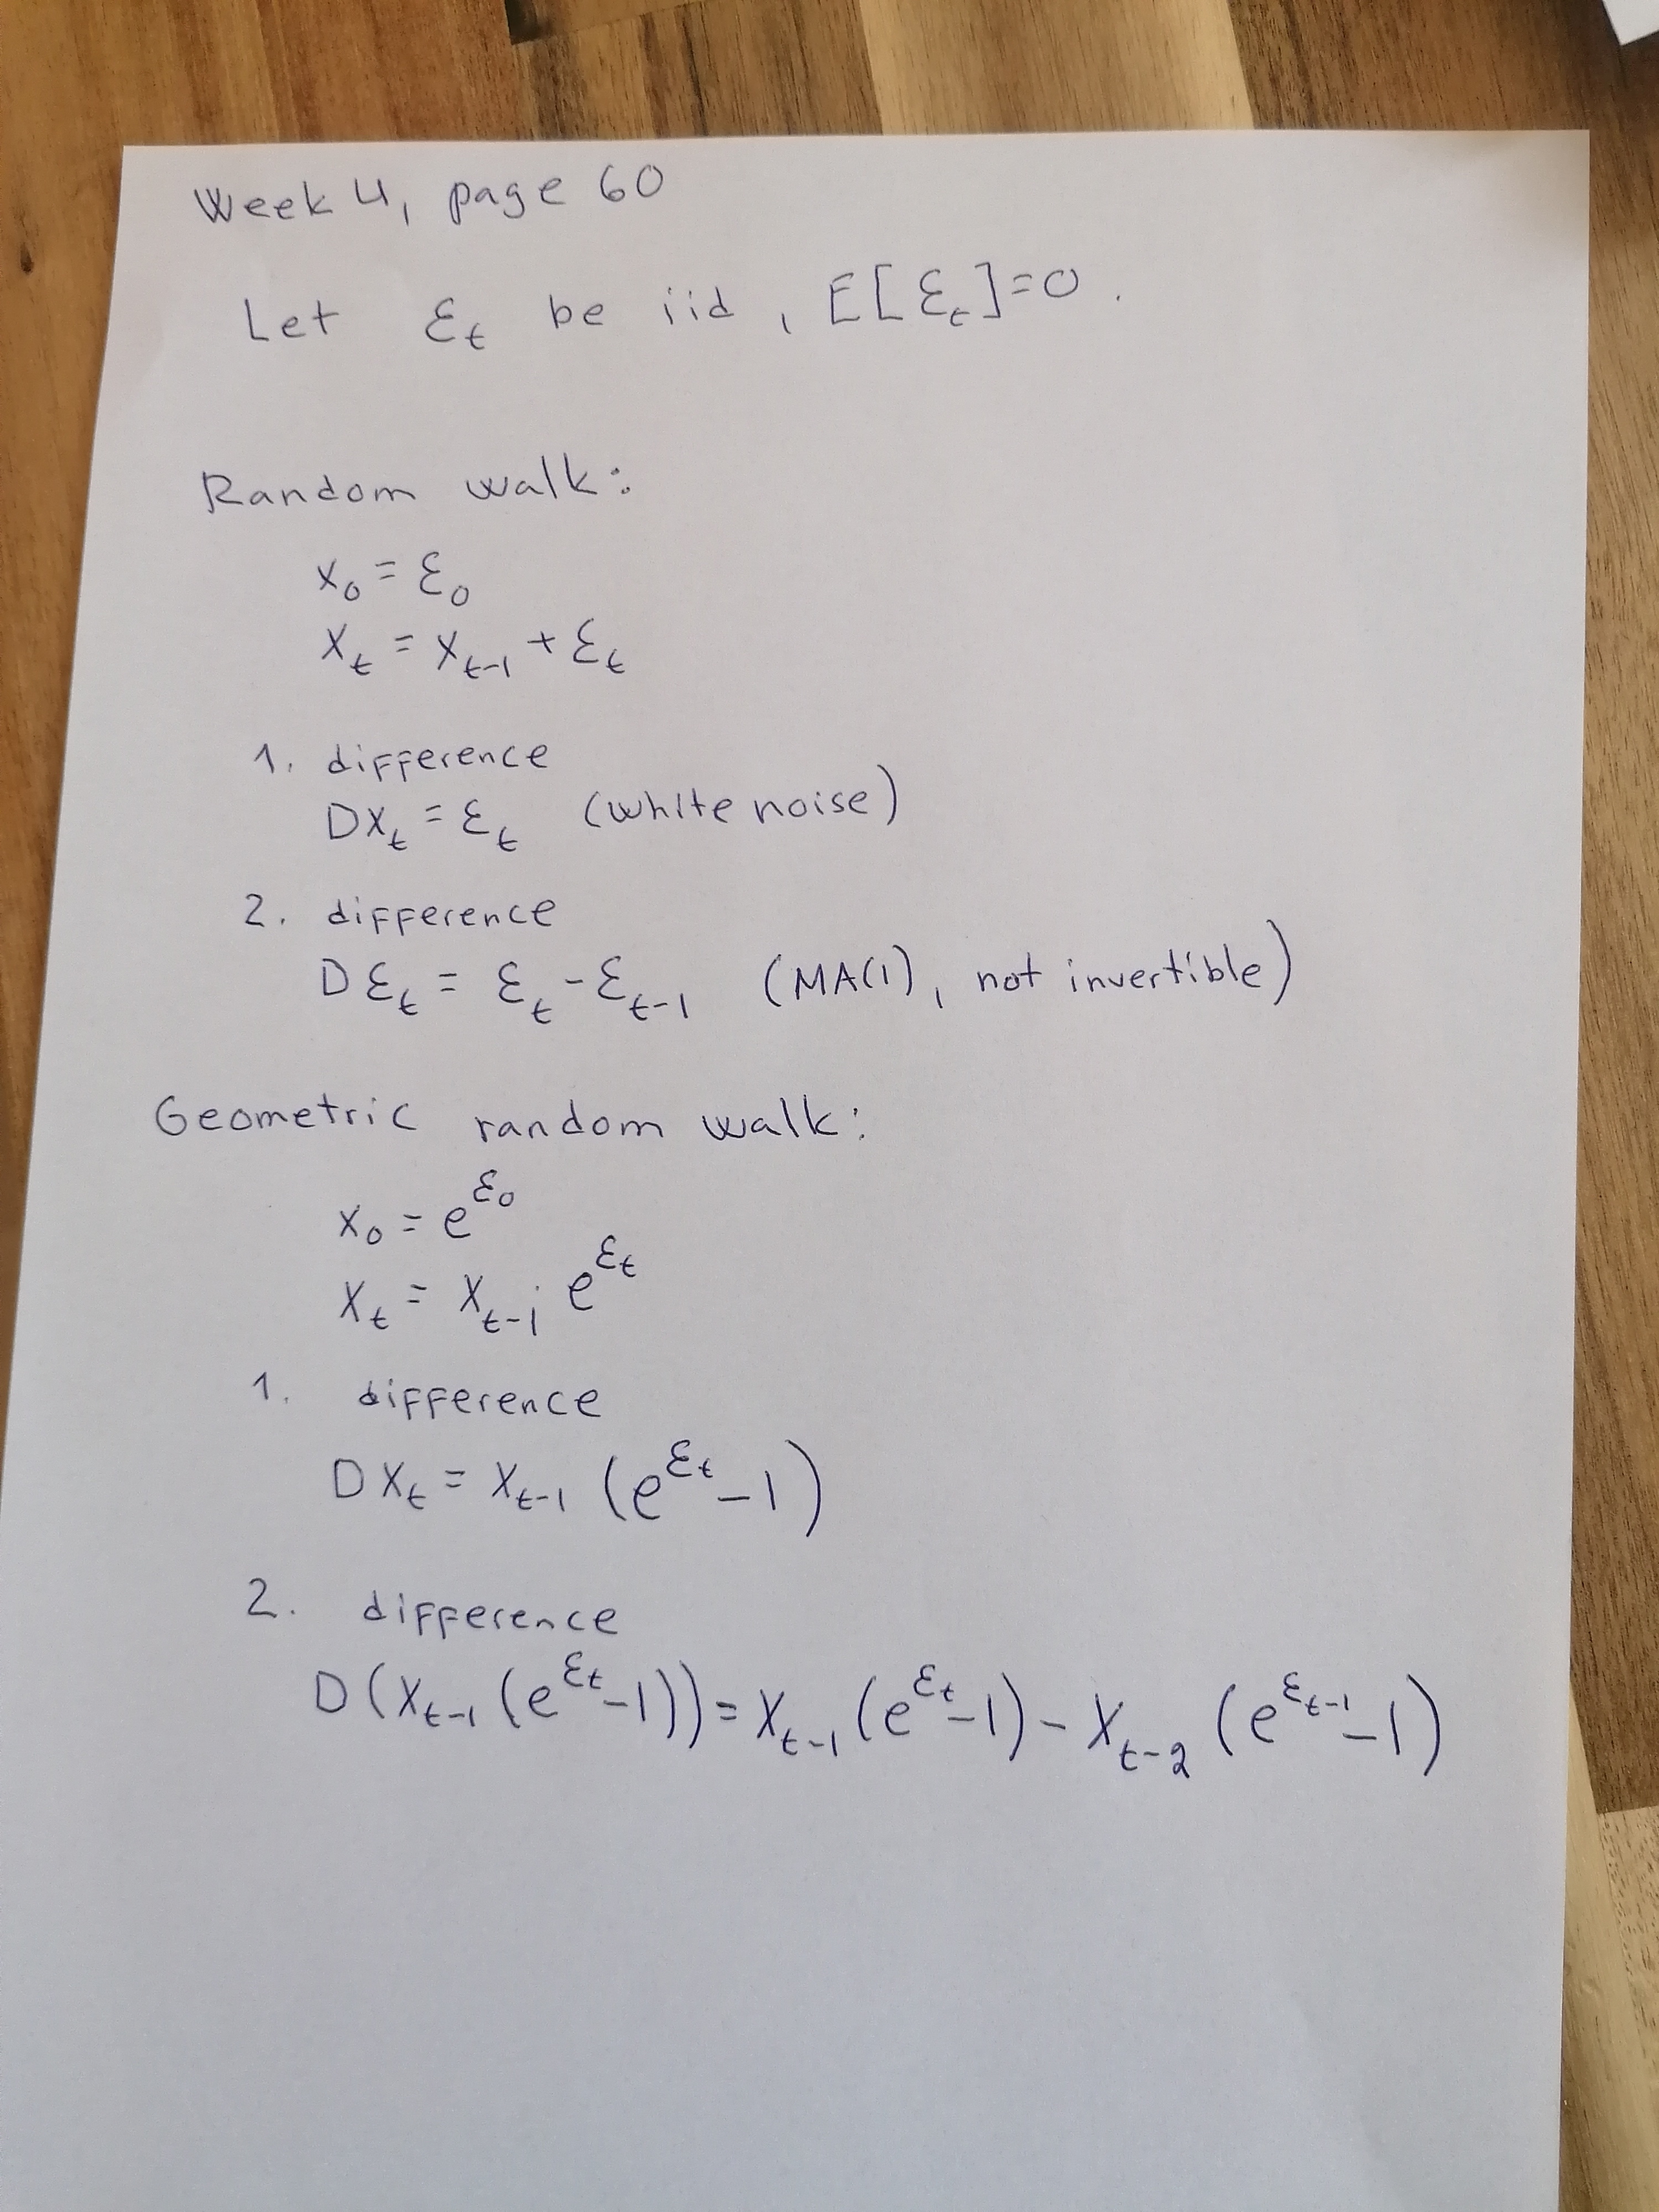 Week 4, page 60
Let ε_t be iid, E[ε_t]=0.
Random walk:
x_0 = ε_0
x_t = x_{t-1} + ε_t
1. difference
Dx_t = ε_t (white noise)
2. difference
Dε_t = ε_t - ε_{t-1} (MA(1), not invertible)
Geometric random walk:
x_0 = e^{ε_0}
x_t = x_{t-1} · e^{ε_t}
1. difference
Dx_t = x_{t-1} (e^{ε_t} - 1)
2. difference
D(x_{t-1} (e^{ε_t} - 1)) = x_{t-1} (e^{ε_t} - 1) - x_{t-2} (e^{ε_{t-1}} - 1)